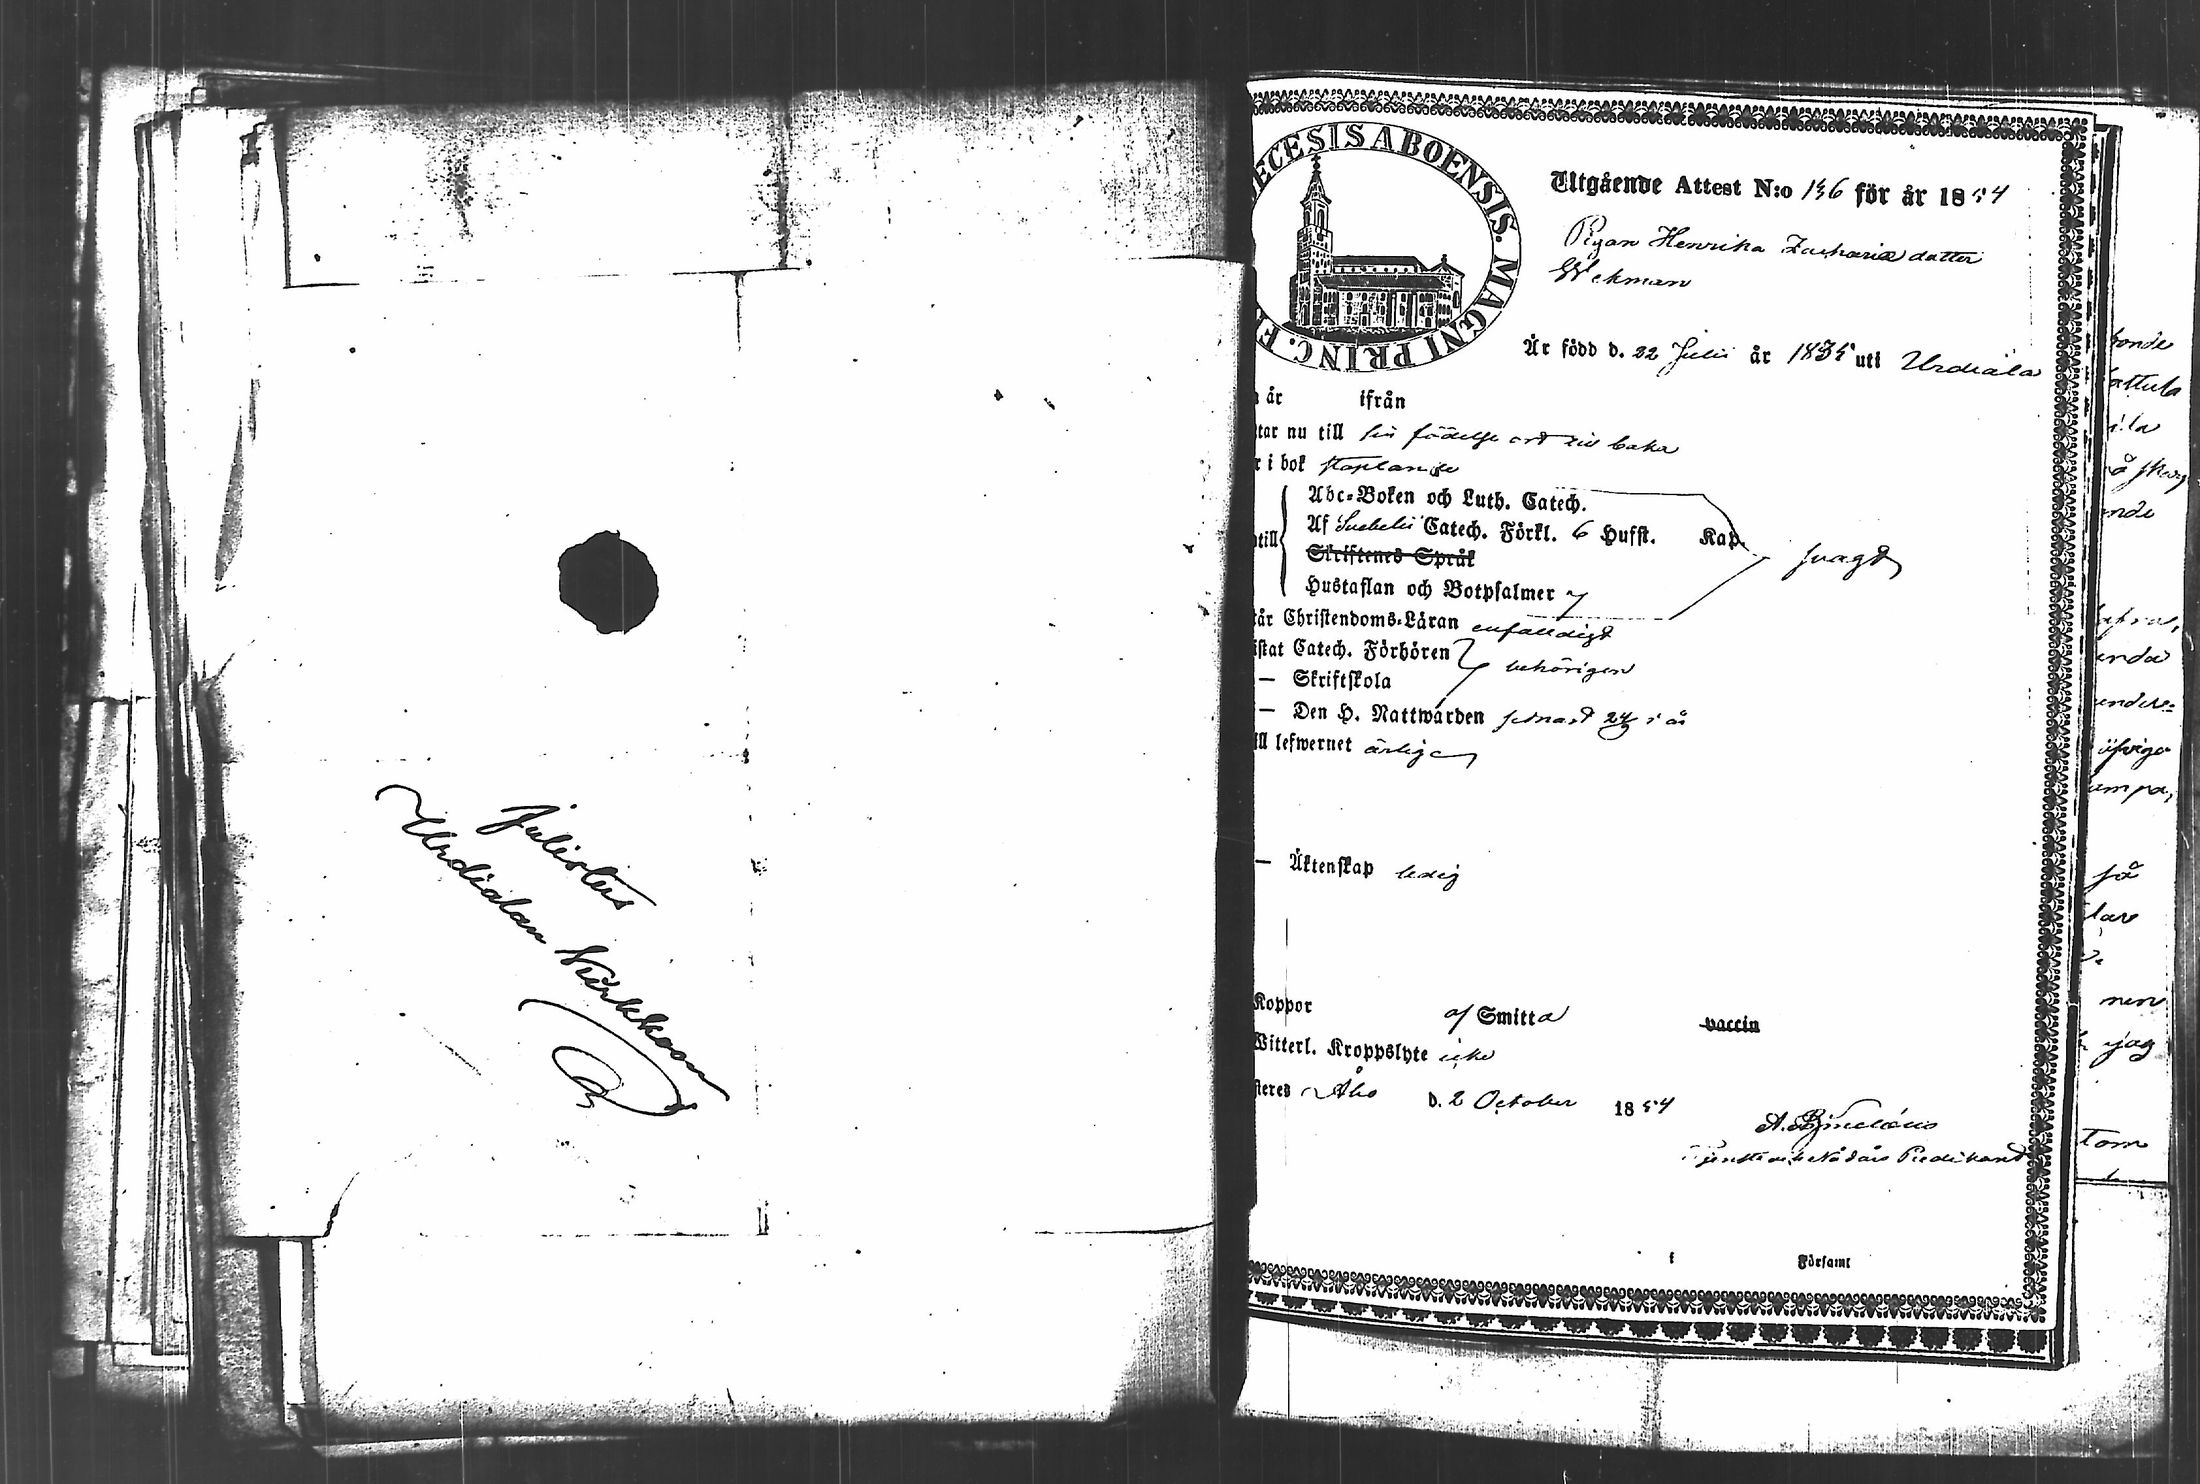 Julistus
Urdialan Kirkkoon
ECESIS ABOENSIS. MAGNI PRINC. F
Utgående Attest N:o 136 för år 1854
Pigan Henrika Zachariædotter
Wekman
Är född d. 22 Julii år 1835 uti Urdiala
år ifrån
tar nu till sin födelse ort tillbaka
r i bok
Abc-Boken och Luth. Catech.
Af Svebelii Catech. Förkl. 6 Hufst. Kap. svagt
till
Skriftenes Språk
Hustaflan och Botpsalmer 7
tår Christendoms-Läran enfaldigt
istat Catech. Förhören
behörigen
— Skriftskola
— Den H. Nattwarden senast i år
ill lefwernet ärlig
— Äktenskap ledig
Koppor af Smitta vaccin
Witterl. Kroppslyte icke
steres Åbo d. 2 October 1854
Predikant
i Församl
bonde
ila
nde
enda
öfriga
så
lare
men
jag
Tom